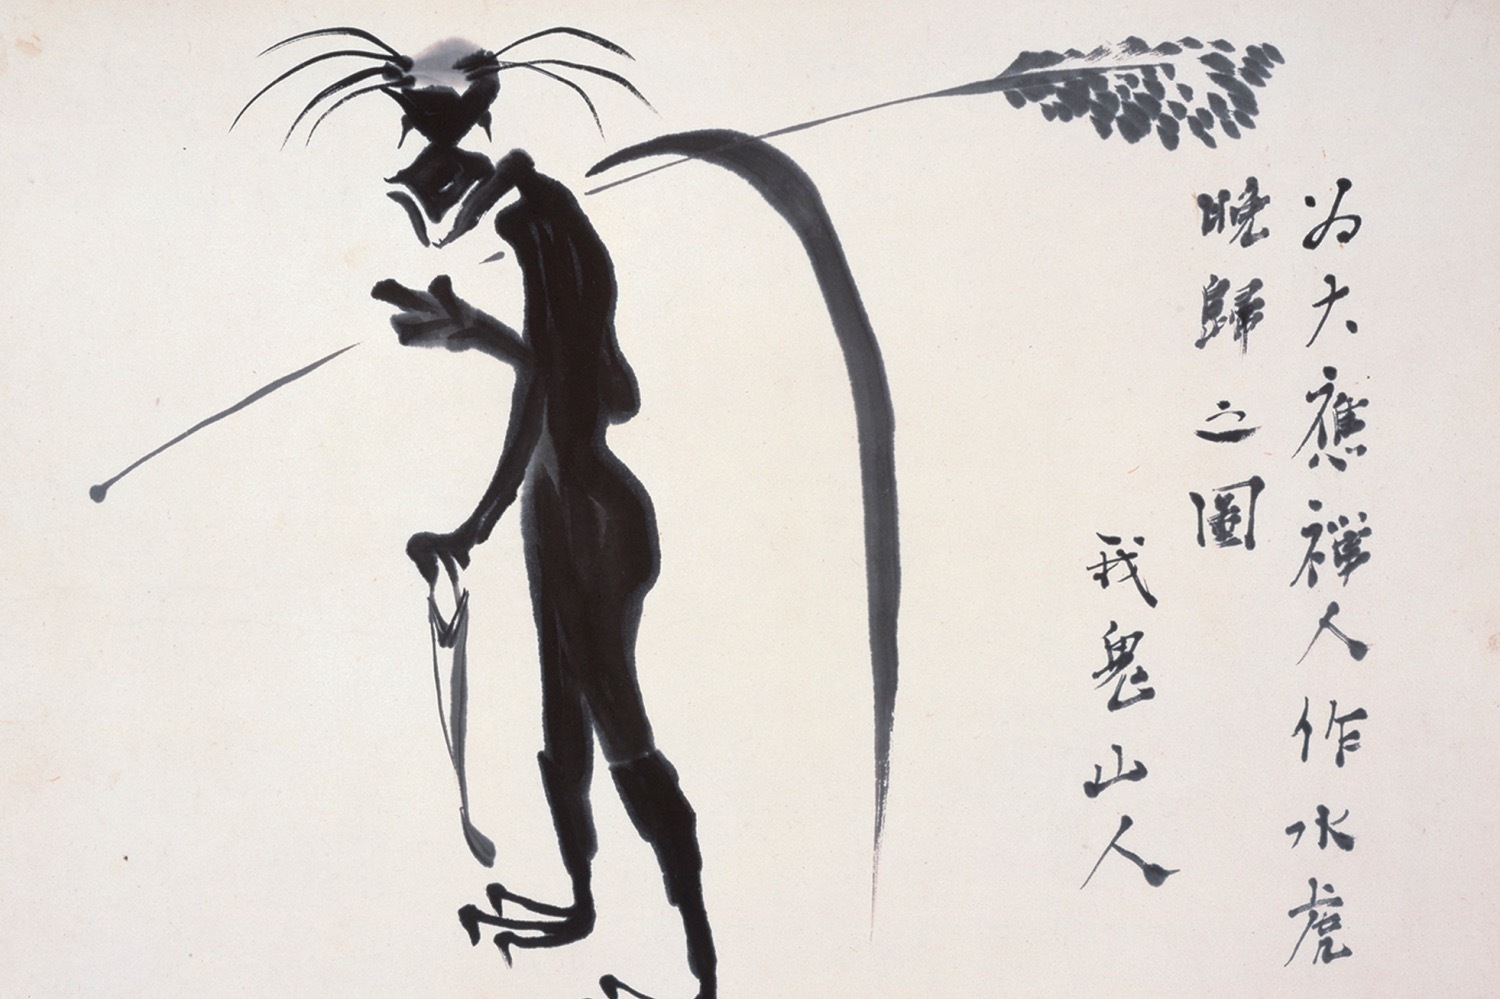 为大應禅人作水虎
晩歸之圖
我鬼山人